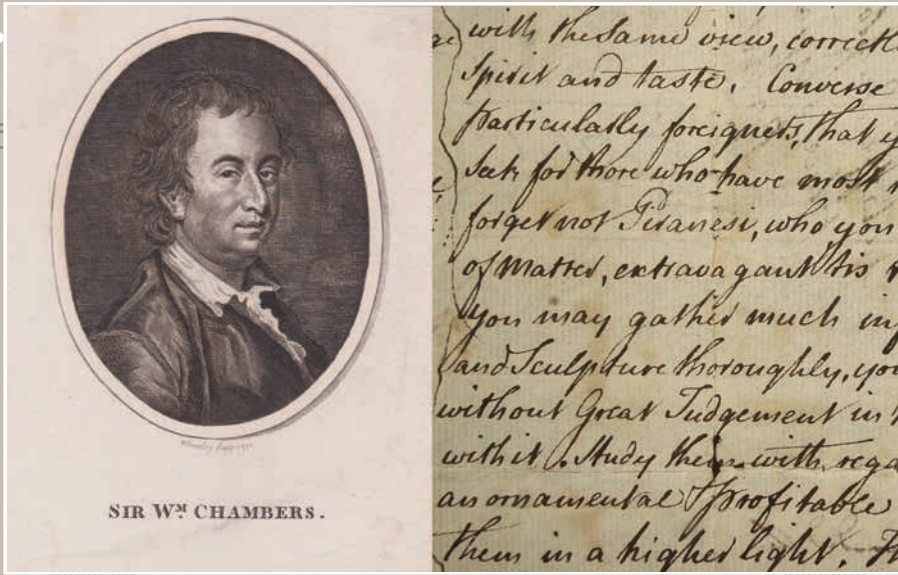 SIR Wᴹ CHAMBERS.
with the same view, correct
Spirit and taste. Converse
particularly foreigners, that y
Seek for those who have most
forget not Piranesi, who you
of matter, extravagant tis
you may gather much in
and Sculpture thoroughly, you
without Great Judgement in
with it. Study them with rega
an ornamental & profitable
them in a higher light. Th